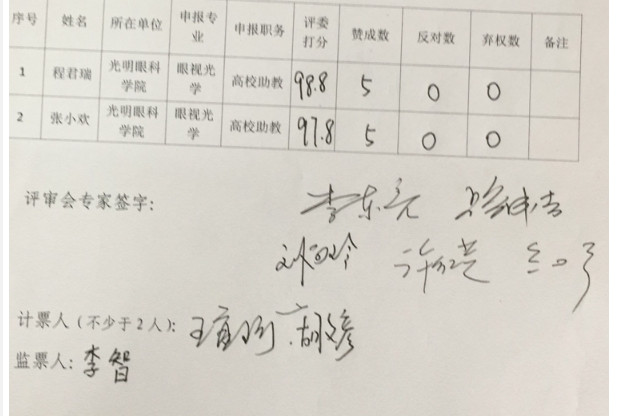 序号 姓名 所在单位 申报专业 申报职务 评委打分 赞成数 反对数 弃权数 备注
1 程君瑞 光明眼科学院 眼视光学 高校助教 98.8 5 0 0
2 张小欢 光明眼科学院 眼视光学 高校助教 97.8 5 0 0
评审会专家签字: 李东亮
计票人(不少于2人):
监票人: 李智